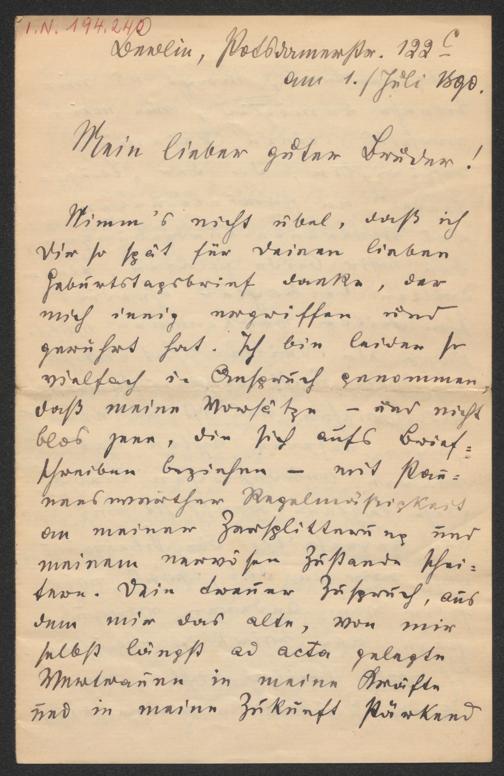 I.N. 194.240
Berlin, Potsdamerstr. 122 c
am 1./Juli 1890.
Mein lieber guter Bruder!
Nimm's nicht übel, daß ich
Dir so spät für Deinen lieben
Geburtstagsbrief danke, der
mich innig ergriffen und
gerührt hat. Ich bin leider so
vielfach in Anspruch genommen,
daß meine Vorsätze – und nicht
blos jene, die sich aufs Brief=
schreiben beziehen – mit stau=
nenswerther Regelmäßigkeit
an meiner Zersplitterung und
meinem nervösen Zustande schei=
tern. Dein treuer Zuspruch, aus
dem mir das alte, von mir
selbst längst ad acta gelegte
Vertrauen in meine Kräfte
und in meine Zukunft stärkend